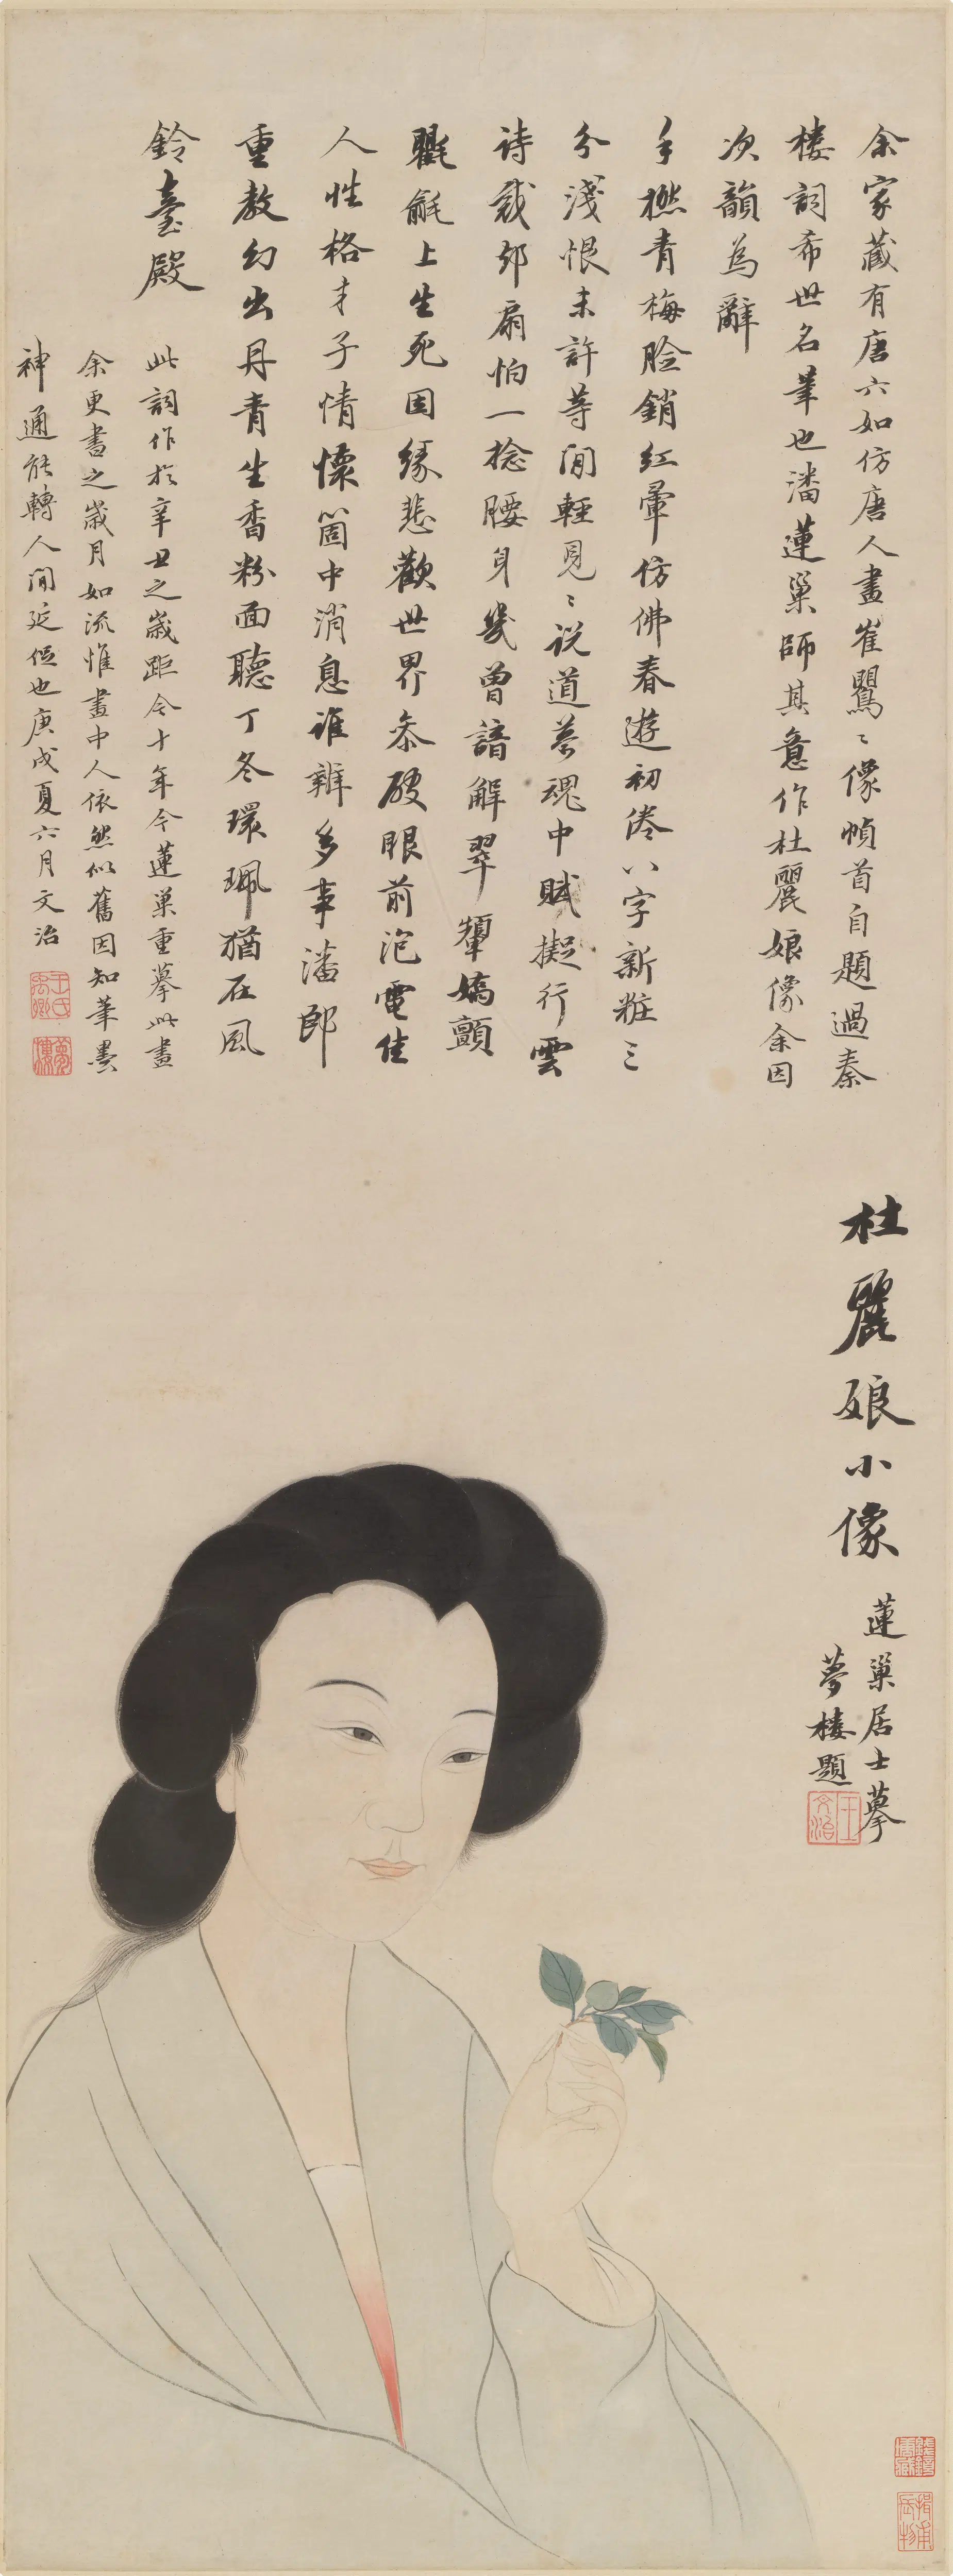 余家藏有唐六如仿唐人畫崔鶯〻像幀首自題過秦
樓詞希世名筆也潘蓮巢師其意作杜麗娘像余因
次韻為辭
手撚青梅臉銷紅暈仿佛春遊初倦八字新粧三
分淺恨未許等閒輕見〻說道夢魂中賦擬行雲
詩裁卻扇怕一捻腰身幾曾諳解翠顰嬌顫
氍毹上生死因緣悲歡世界參破眼前泡電佳
人性格才子情懷箇中消息誰辨多事潘郎
重教幻出丹青生香粉面聽丁冬環珮猶在風
鈴臺殿
此詞作於辛丑之歲距今十年今蓮巢重摹此畫
余更書之歲月如流惟畫中人依然似舊因知筆墨
神通能轉人間延促也庚戌夏六月文治
王氏禹卿
夢樓
杜麗娘小像
蓮巢居士摹
夢樓題
王文治